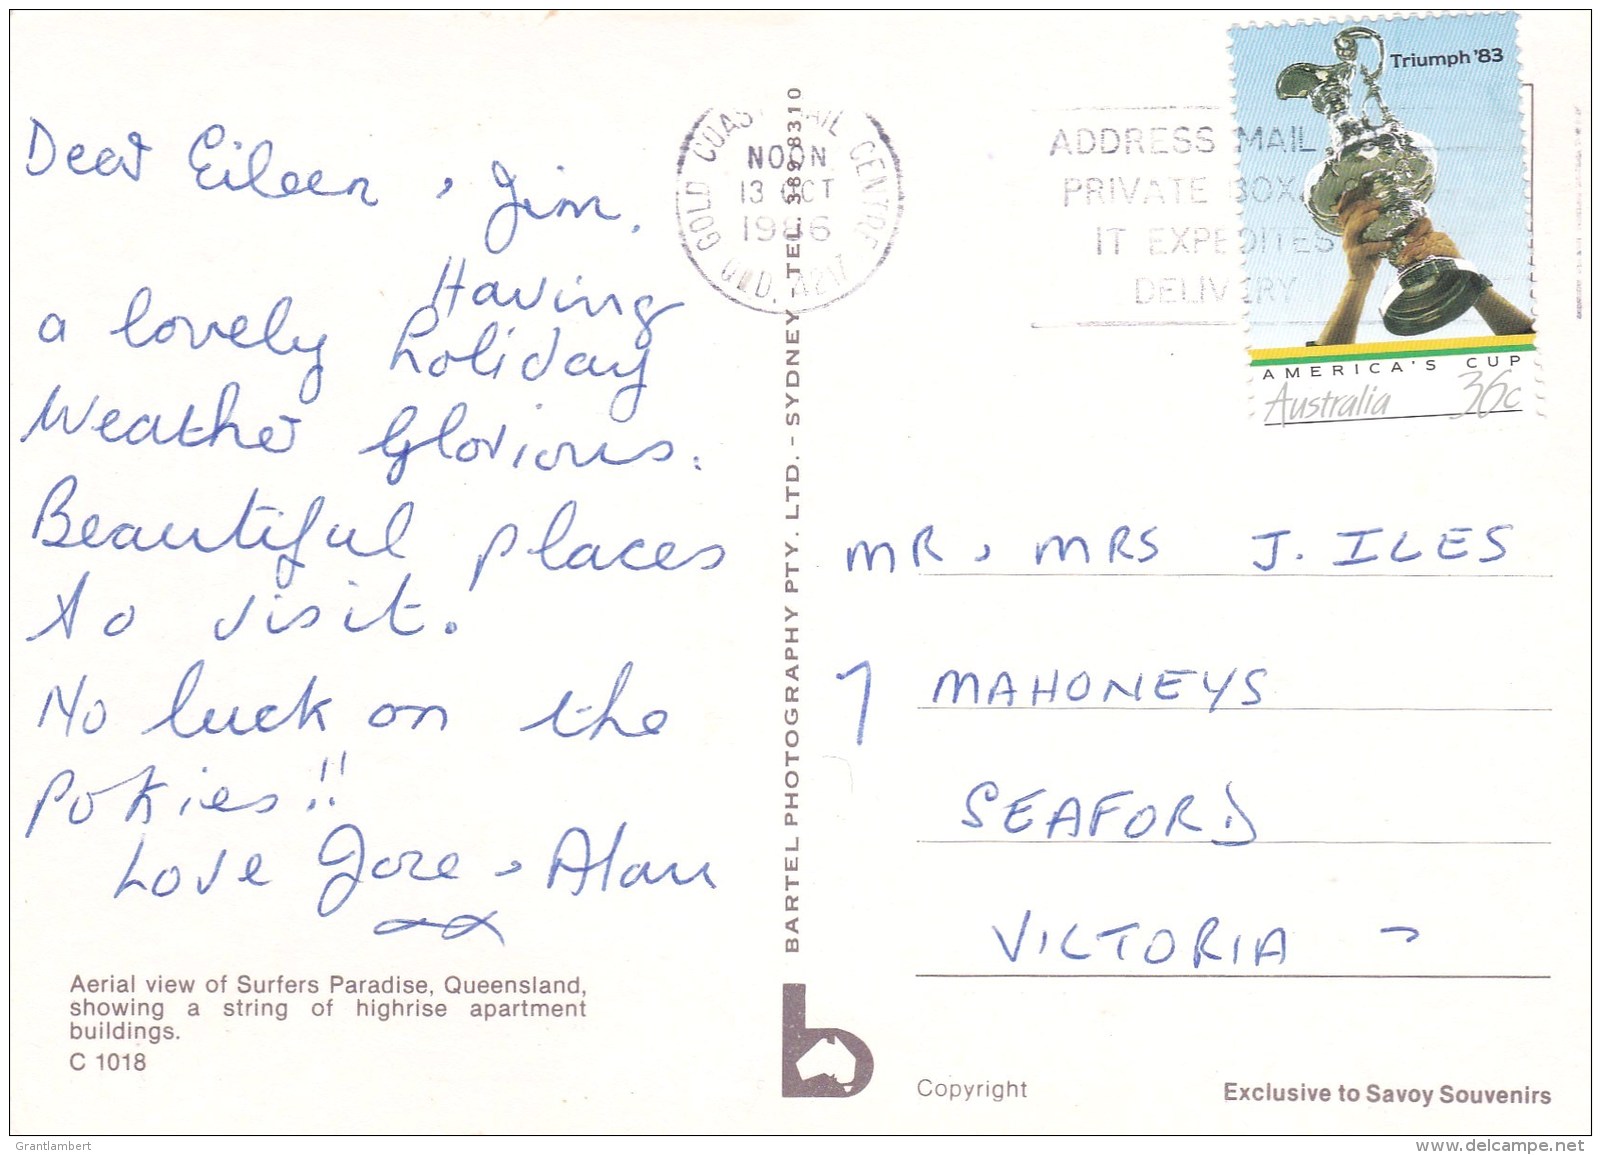 Dear Eileen, Jim,
Having
a lovely holiday
Weather Glorious.
Beautiful places
to visit.
No luck on the
pokies!!
Love , Alan
Aerial view of Surfers Paradise, Queensland,
showing a string of highrise apartment
buildings.
C 1018
BARTEL PHOTOGRAPHY PTY. LTD. - SYDNEY - TEL. 389 8310
GOLD COAST MAIL CENTRE
NOON
13 OCT
1986
QLD. 4217
ADDRESS MAIL
PRIVATE BOX
IT EXPEDITES
DELIVERY
Triumph '83
AMERICA'S CUP
Australia 36c
MR, MRS J. ILES
7 MAHONEYS
SEAFORD
VICTORIA -
Copyright
Exclusive to Savoy Souvenirs
Grantlambert
www.delcampe.net